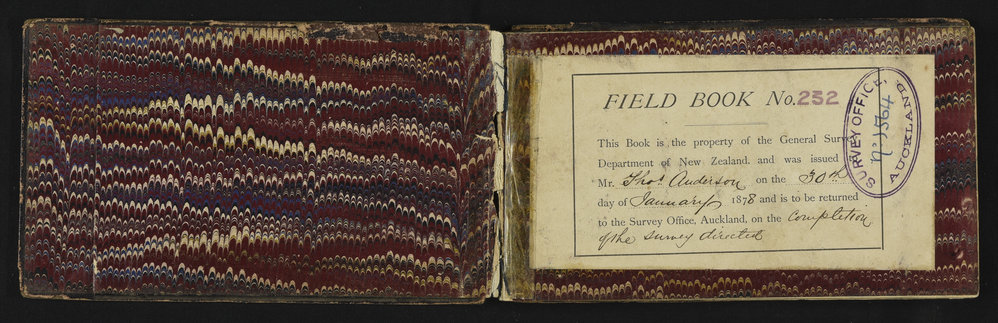 FIELD BOOK No. 252
This Book is the property of the General Survey
Department of New Zealand. and was issued
Mr. Thos. Anderson on the 30th
day of January 1878 and is to be returned
to the Survey Office, Auckland, on the completion
of the survey directed
SURVEY OFFICE,
AUCKLAND